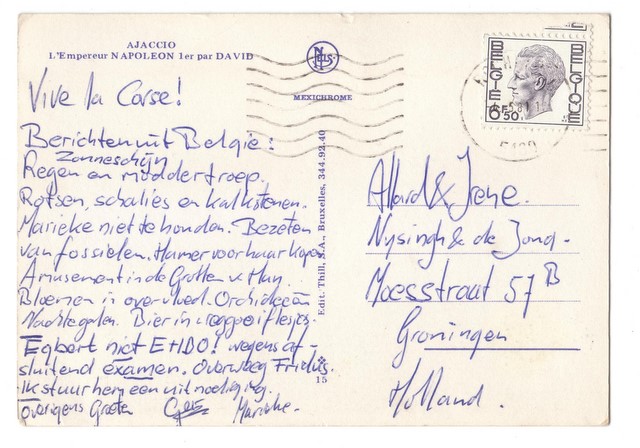 AJACCIO
L'Empereur NAPOLEON 1er par DAVID
MEXICHROME
Edit. Thill, S.A., Bruxelles, 344.92.40
15
BELGIE
BELGIQUE
6F50
Vive la Corse!
Berichten uit Belgie:
Zonneschijn
Regen en moddertroep.
Rotsen, schalies en kalkstenen.
Marieke niet te houden. Bezeten
van fossielen. Hamer voor haar kopen
Amusement in de Grotten v. Han.
Bloemen in overvloed. Orchideeën
Nachtegalen. Bier in weggooiflesjes.
Egbert niet EHBO! wegens af-
sluitend examen. Overweeg Fridus.
Ik stuur hem een uitnodiging.
Overigens Groeten
Marieke.
Allard & Irene.
Nysingh & de Jong -
Maesstraat 57 B
Groningen
Holland.